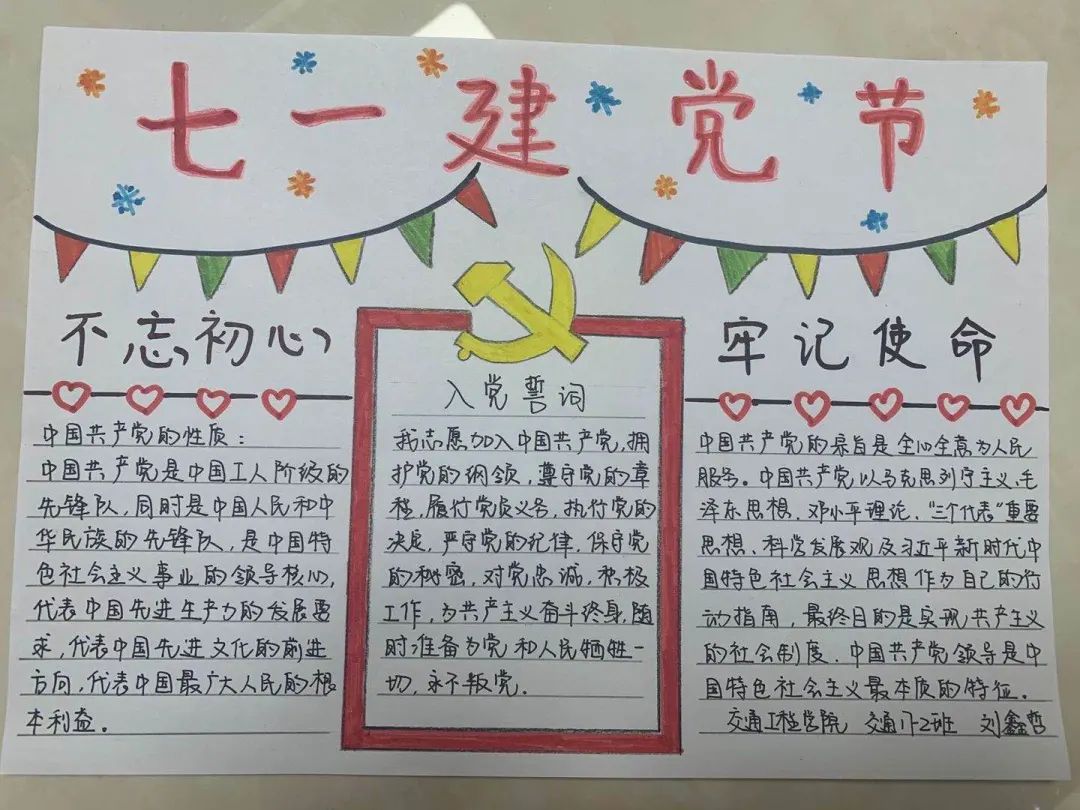 七一建党节
不忘初心
中国共产党的性质：
中国共产党是中国工人阶级的
先锋队，同时是中国人民和中
华民族的先锋队，是中国特
色社会主义事业的领导核心，
代表中国先进生产力的发展要
求，代表中国先进文化的前进
方向，代表中国最广大人民的根
本利益。
入党誓词
我志愿加入中国共产党，拥
护党的纲领，遵守党的章
程，履行党员义务，执行党的
决定，严守党的纪律，保守党
的秘密，对党忠诚，积极
工作，为共产主义奋斗终身，随
时准备为党和人民牺牲一
切，永不叛党。
牢记使命
中国共产党的宗旨是全心全意为人民
服务。中国共产党以马克思列宁主义、毛
泽东思想、邓小平理论、“三个代表”重要
思想、科学发展观及习近平新时代中
国特色社会主义思想作为自己的行
动指南，最终目的是实现共产主义
的社会制度。中国共产党领导是中
国特色社会主义最本质的特征。
交通工程学院 交通 2班 刘鑫哲